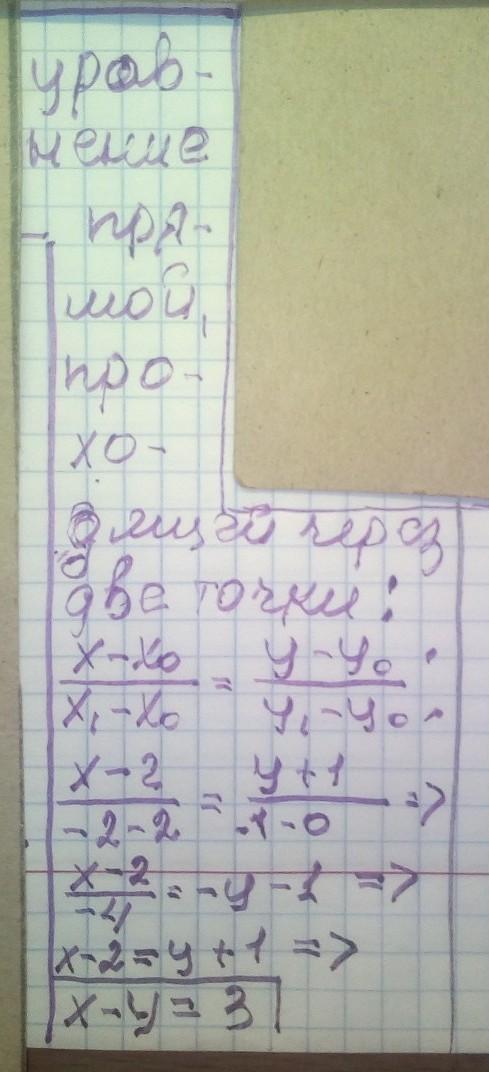 урав-
нение
пря-
мой,
про-
хо-
дящей через
две точки:
x-x₀/x₁-x₀ = y-y₀/y₁-y₀.
x-2/-2-2 = y+1/-1-0 =>
x-2/-4 = -y-1 =>
x-2=y+1 =>
x-y=3